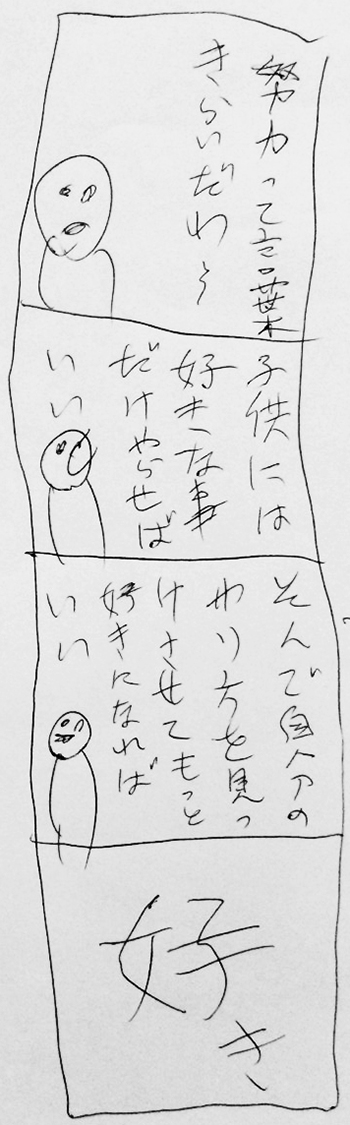 努力って言葉
きらいだわ〜
子供には
好きな事
だけやらせば
いい
そんで自分の
やり方を見っ
けさせてもっと
好きになれば
いい
好き